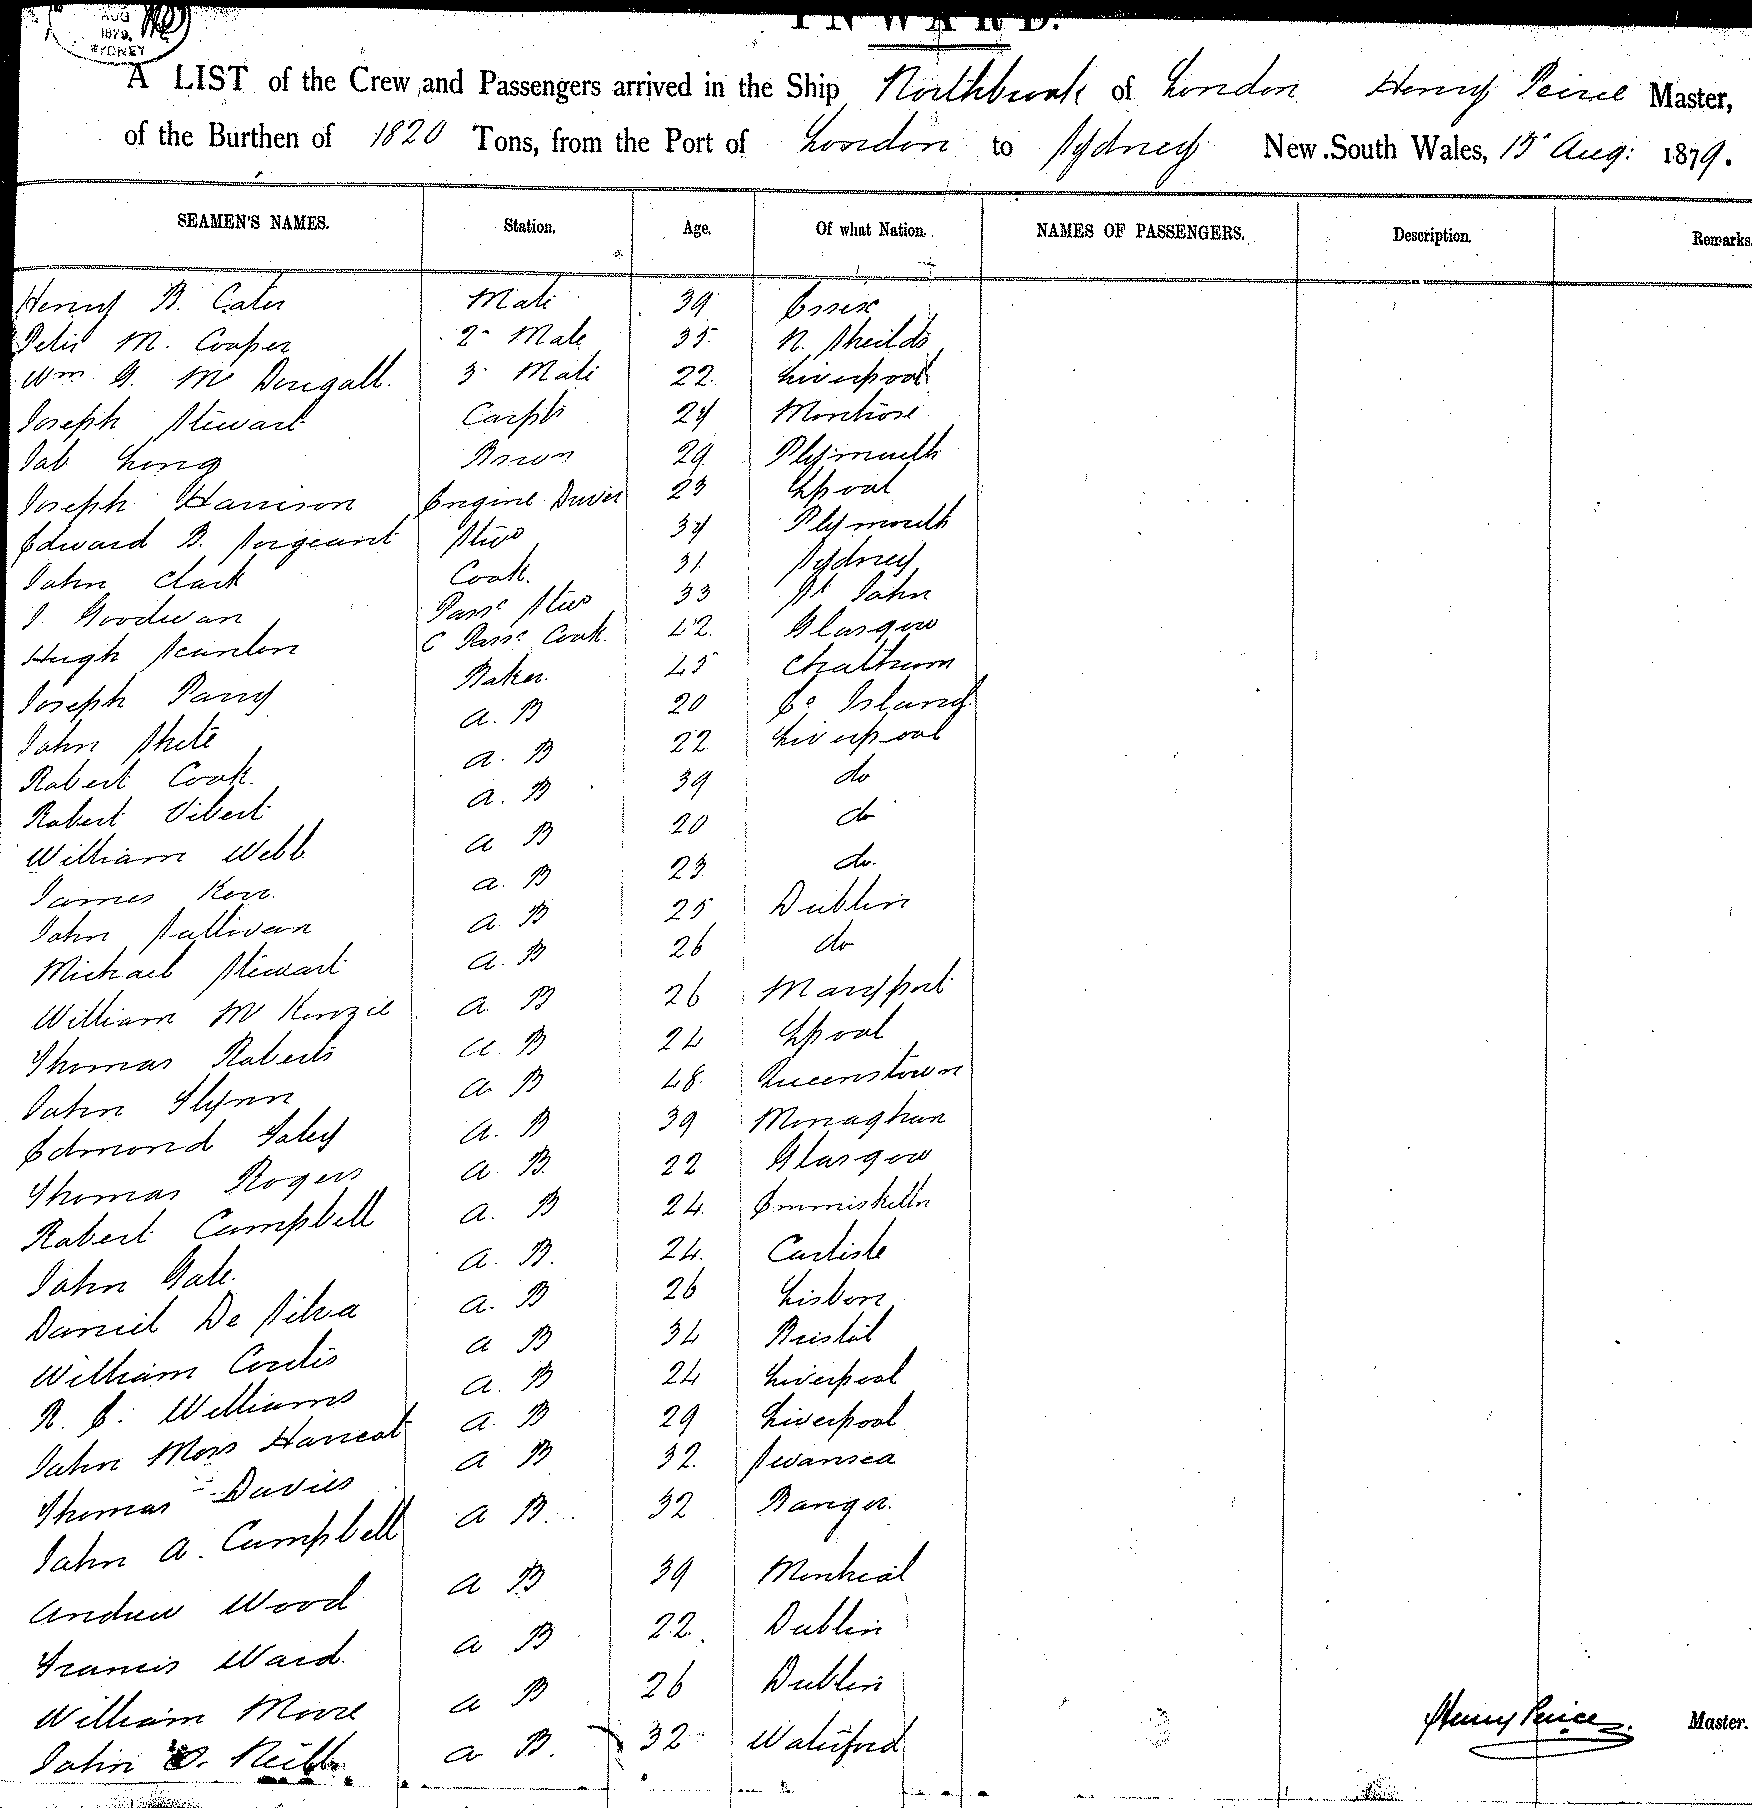 AUG
1879
SYDNEY
INWARD.
A LIST of the Crew and Passengers arrived in the Ship Northbrook of London Henry Peirce Master,
of the Burthen of 1820 Tons, from the Port of London to Sydney New South Wales, 15 Aug: 1879.
SEAMEN'S NAMES. Station. Age. Of what Nation. NAMES OF PASSENGERS. Description. Remarks.
Henry B. Cater Mate 39 Essex
Peter M. Cooper 2 Mate 35 N. Sheilds
Wm G. Mc Dougall 3 Mate 22 Liverpool
Joseph Stewart Carptr 24 Montrose
Jab Long Bosun 29 Plymouth
Joseph Harrison Engine Driver 23 Lpool
Edward B. Sergeant Stwd 34 Plymouth
John Clark Cook 31 Sydney
J. Goodwan Passr Stwd 33 St John
Hugh Scanlon C Passr Cook 42 Glasgow
Joseph Parry Baker 45 Chatham
John Skete A. B 20 Island
Robert Cook A. B 22 Liverpool
Robert Vibert A. B 39 do
William Webb A B 20 do
James Kerr A. B 23 do
John Sullivan A. B 25 Dublin
Michael Stewart A. B 26 do
William Mc Kenzie A. B 26 Maryport
Thomas Roberts A. B 24 Lpool
John Flynn A B 48 Queenstown
Edmond Foley A. B 39 Monaghan
Thomas Rogers A. B. 22 Glasgow
Robert Campbell A. B 24 Emmiskilln
John Gale A. B. 24 Carlisle
Daniel De Silva A. B 26 Lisbon
William Curtis A B 34 Bristol
R. E. Williams A. B 24 Liverpool
John Moss Haricot A. B 29 Liverpool
Thomas Davies A B 32 Swansea
John A. Campbell A B. 32 Bangor
Andrew Wood A B 39 Montreal
Francis Ward A B 22 Dublin
William Moore A B 26 Dublin
John O. Neill A B. 32 Waterford
Henry Peirce Master.